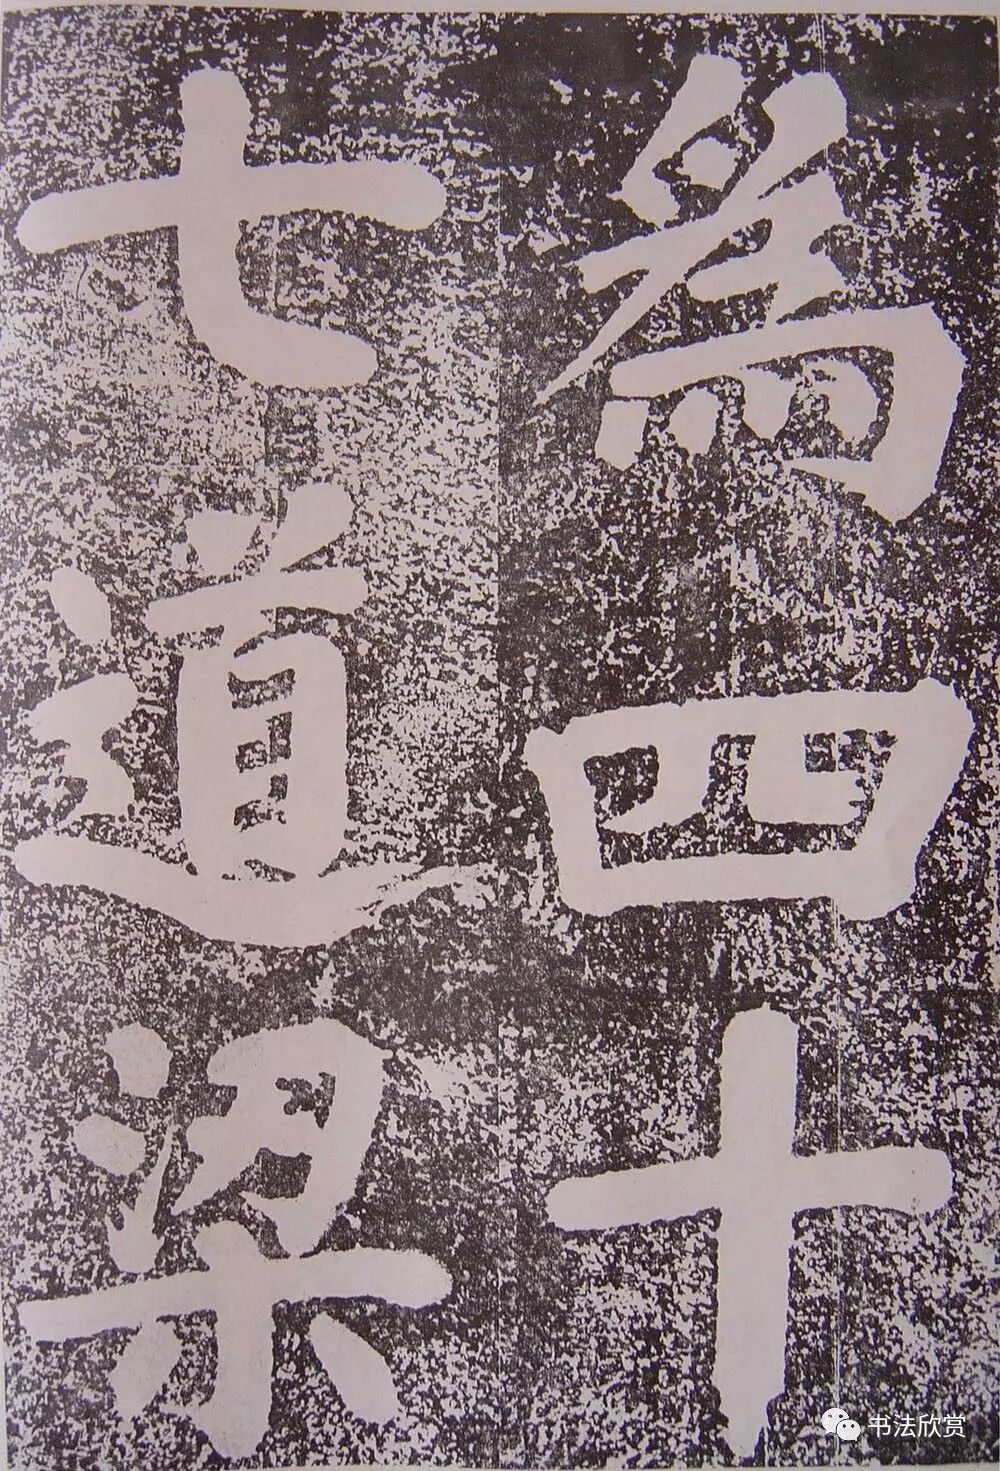 為四十
七道梁
书法欣赏